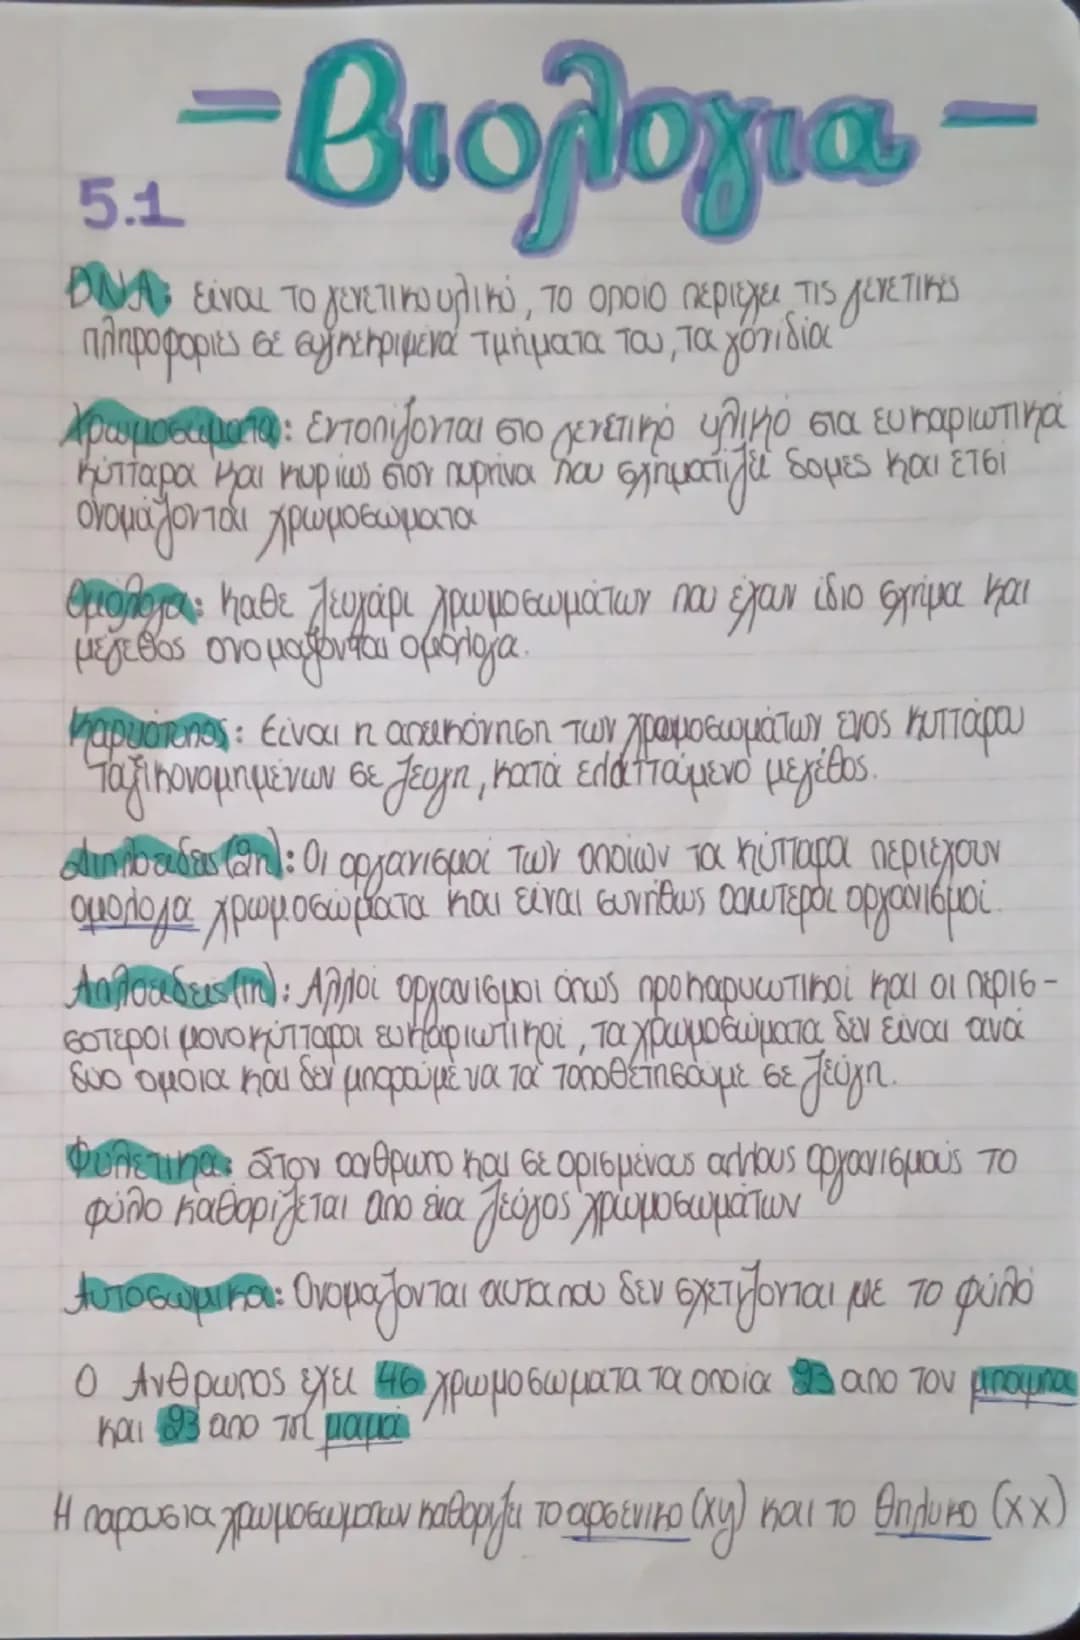 - Βιολογια -
5.1
DNA: είναι το γενετικο υλικό, το οποιο περιεχει τις γενετικές
πληροφοριες σε συγκεκριμενα τμήματα του, τα γονίδια
Χρωμοσωματα: Εντοπιζονται στο γενετικό υλικό στα ευκαριωτικά
κύτταρα και κυρίως στον πυρήνα που σχηματίζει δομες και ετσι
ονομάζονται χρωμοσωματα
Ομόλογα: καθε ζευγάρι χρωμοσωμάτων που έχουν ίδιο σχήμα και
μέγεθος ονομαζονται ομόλογα.
Καρυότυπος: Είναι η απεικόνηση των χρωμοσωμάτων ενος κυττάρου
ταξικονομημένων σε ζευγη, κατά ελαττωμενο μεγέθος.
Διπλοειδεις (2n): Οι οργανισμοί των οποίων τα κύτταρα περιέχουν
ομολογα χρωμοσώματα και είναι συνήθως ανωτεροι οργανισμοί.
Απλοειδεις (n): Αλλοι οργανισμοι όπως προκαρυωτικοί και οι περισ-
σοτεροι μονοκύτταροι ευκαριωτικοί, τα χρωμοσώματα δεν είναι ανά
δυο ομοια και δεν μπορουμε να τα τοποθετησουμε σε ζεύγη.
Φυλετικα: Στον ανθρωπο και σε ορισμένους αλλους οργανισμούς το
φύλο καθορίζεται απο ένα ζεύγος χρωμοσωμάτων
Αυτοσωμικα: Ονομαζονται αυτα που δεν σχετιζονται με το φύλο
Ο Ανθρωπος έχει 46 χρωμοσωματα τα οποία 23 απο τον μπαμπα
και 23 απο τη μαμά
Η παρουσια χρωμοσωματων καθοριζει το αρσενικο (xy) και το θηλυκο (xx)